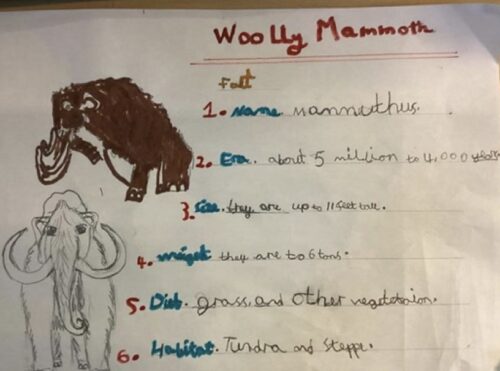 Woolly Mammoth
Fact
1. Name Mammuthus.
2. Era. about 5 million to 4,000
3. Size. they are up to 11 feet tall.
4. weiget they are to 6 tons.
5. Diet. grass and other vegetetaion.
6. Habitat. Tundra and Steppe.